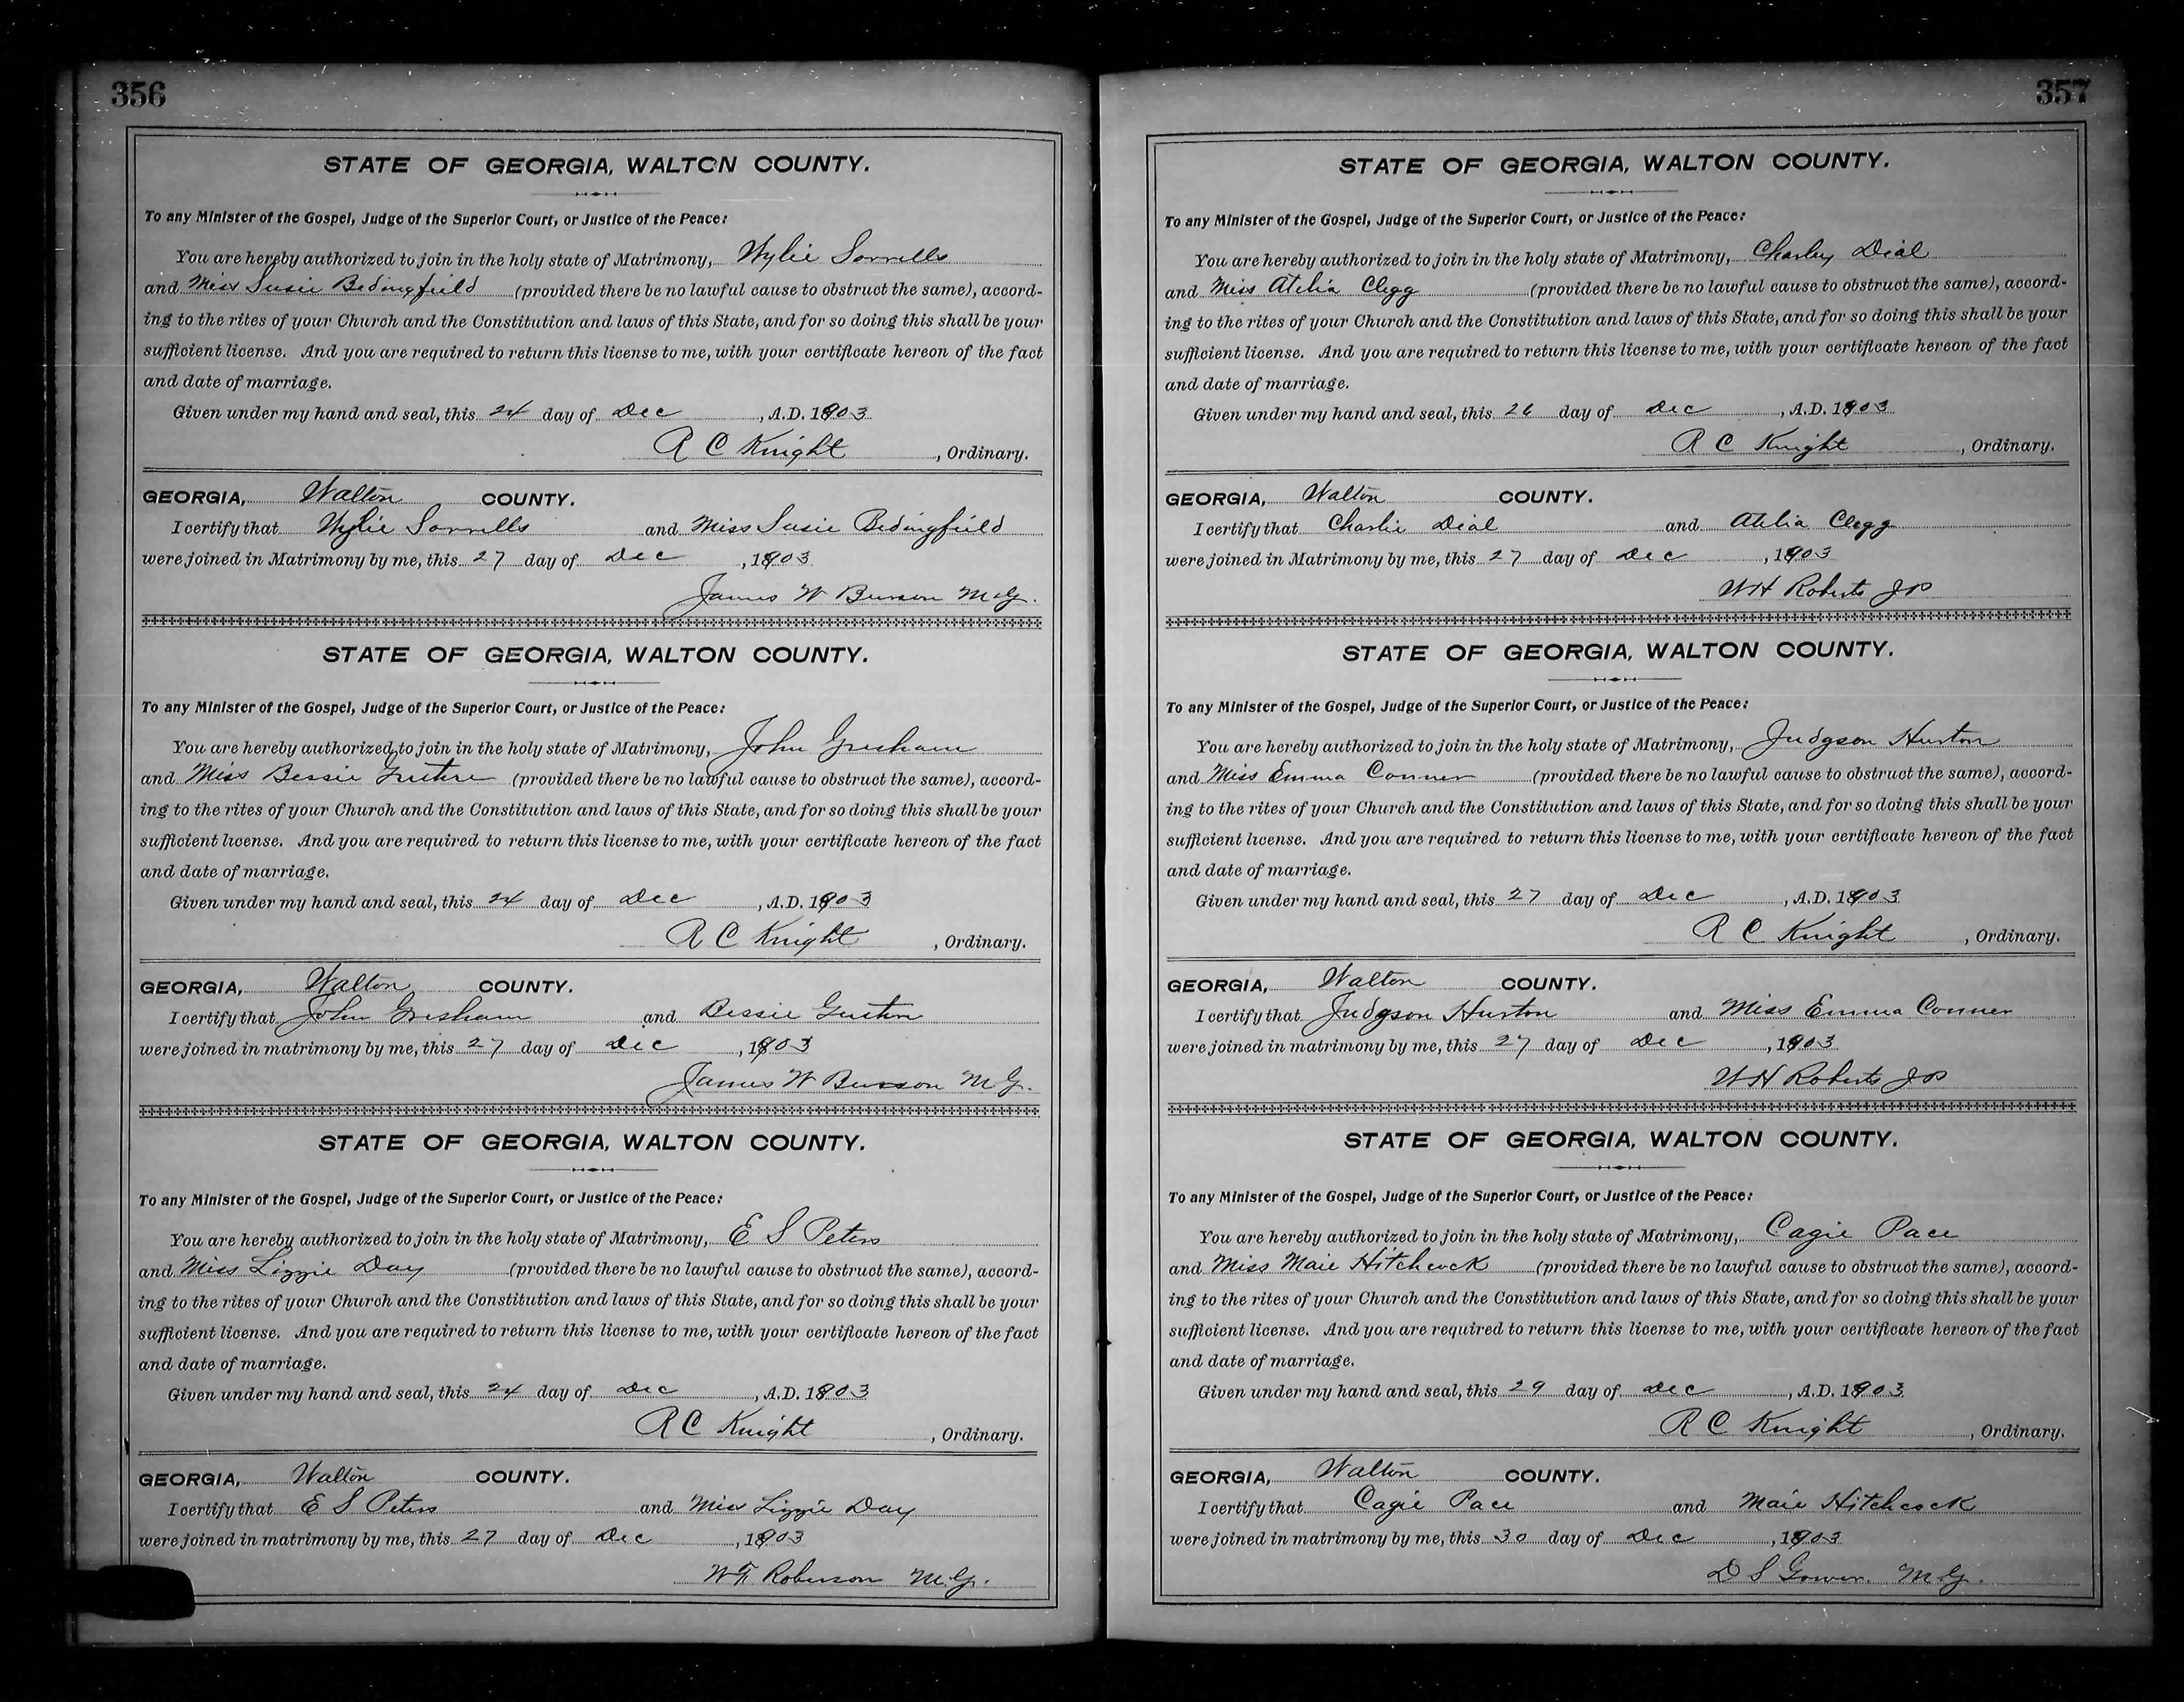 356
STATE OF GEORGIA, WALTON COUNTY.
To any Minister of the Gospel, Judge of the Superior Court, or Justice of the Peace:
You are hereby authorized to join in the holy state of Matrimony, Wylie Sorrells
and Miss Susie Bedingfield (provided there be no lawful cause to obstruct the same), accord-
ing to the rites of your Church and the Constitution and laws of this State, and for so doing this shall be your
sufficient license. And you are required to return this license to me, with your certificate hereon of the fact
and date of marriage.
Given under my hand and seal, this 24 day of Dec, A.D. 1903
R C Knight, Ordinary.
GEORGIA, Walton COUNTY.
I certify that Wylie Sorrells and Miss Susie Bedingfield
were joined in Matrimony by me, this 27 day of Dec, 1903
James W Burson M.G.
STATE OF GEORGIA, WALTON COUNTY.
To any Minister of the Gospel, Judge of the Superior Court, or Justice of the Peace:
You are hereby authorized to join in the holy state of Matrimony, John Gresham
and Miss Bessie (provided there be no lawful cause to obstruct the same), accord-
ing to the rites of your Church and the Constitution and laws of this State, and for so doing this shall be your
sufficient license. And you are required to return this license to me, with your certificate hereon of the fact
and date of marriage.
Given under my hand and seal, this 24 day of Dec, A.D. 1903
R C Knight, Ordinary.
GEORGIA, Walton COUNTY.
I certify that John Gresham and Bessie
were joined in matrimony by me, this 27 day of Dec, 1903
James W Burson M.G.
STATE OF GEORGIA, WALTON COUNTY.
To any Minister of the Gospel, Judge of the Superior Court, or Justice of the Peace:
You are hereby authorized to join in the holy state of Matrimony, E S Peters
and Miss Lizzie Day (provided there be no lawful cause to obstruct the same), accord-
ing to the rites of your Church and the Constitution and laws of this State, and for so doing this shall be your
sufficient license. And you are required to return this license to me, with your certificate hereon of the fact
and date of marriage.
Given under my hand and seal, this 24 day of Dec, A.D. 1903
R C Knight, Ordinary.
GEORGIA, Walton COUNTY.
I certify that E S Peters and Miss Lizzie Day
were joined in matrimony by me, this 27 day of Dec, 1903
W T Roberson M.G.
357
STATE OF GEORGIA, WALTON COUNTY.
To any Minister of the Gospel, Judge of the Superior Court, or Justice of the Peace:
You are hereby authorized to join in the holy state of Matrimony, Charley Dial
and Miss Atelia Clegg (provided there be no lawful cause to obstruct the same), accord-
ing to the rites of your Church and the Constitution and laws of this State, and for so doing this shall be your
sufficient license. And you are required to return this license to me, with your certificate hereon of the fact
and date of marriage.
Given under my hand and seal, this 26 day of Dec, A.D. 1903
R C Knight, Ordinary.
GEORGIA, Walton COUNTY.
I certify that Charlie Dial and Atelia Clegg
were joined in Matrimony by me, this 27 day of Dec, 1903
W H Roberts J P
STATE OF GEORGIA, WALTON COUNTY.
To any Minister of the Gospel, Judge of the Superior Court, or Justice of the Peace:
You are hereby authorized to join in the holy state of Matrimony, Judgson Huston
and Miss Emma Conner (provided there be no lawful cause to obstruct the same), accord-
ing to the rites of your Church and the Constitution and laws of this State, and for so doing this shall be your
sufficient license. And you are required to return this license to me, with your certificate hereon of the fact
and date of marriage.
Given under my hand and seal, this 27 day of Dec, A.D. 1903
R C Knight, Ordinary.
GEORGIA, Walton COUNTY.
I certify that Judgson Huston and Miss Emma Conner
were joined in matrimony by me, this 27 day of Dec, 1903
W H Roberts J P
STATE OF GEORGIA, WALTON COUNTY.
To any Minister of the Gospel, Judge of the Superior Court, or Justice of the Peace:
You are hereby authorized to join in the holy state of Matrimony, Cagie Pace
and Miss Maie Hitchcock (provided there be no lawful cause to obstruct the same), accord-
ing to the rites of your Church and the Constitution and laws of this State, and for so doing this shall be your
sufficient license. And you are required to return this license to me, with your certificate hereon of the fact
and date of marriage.
Given under my hand and seal, this 29 day of Dec, A.D. 1903
R C Knight, Ordinary.
GEORGIA, Walton COUNTY.
I certify that Cagie Pace and Maie Hitchcock
were joined in matrimony by me, this 30 day of Dec, 1903
D S Gower. M.G.